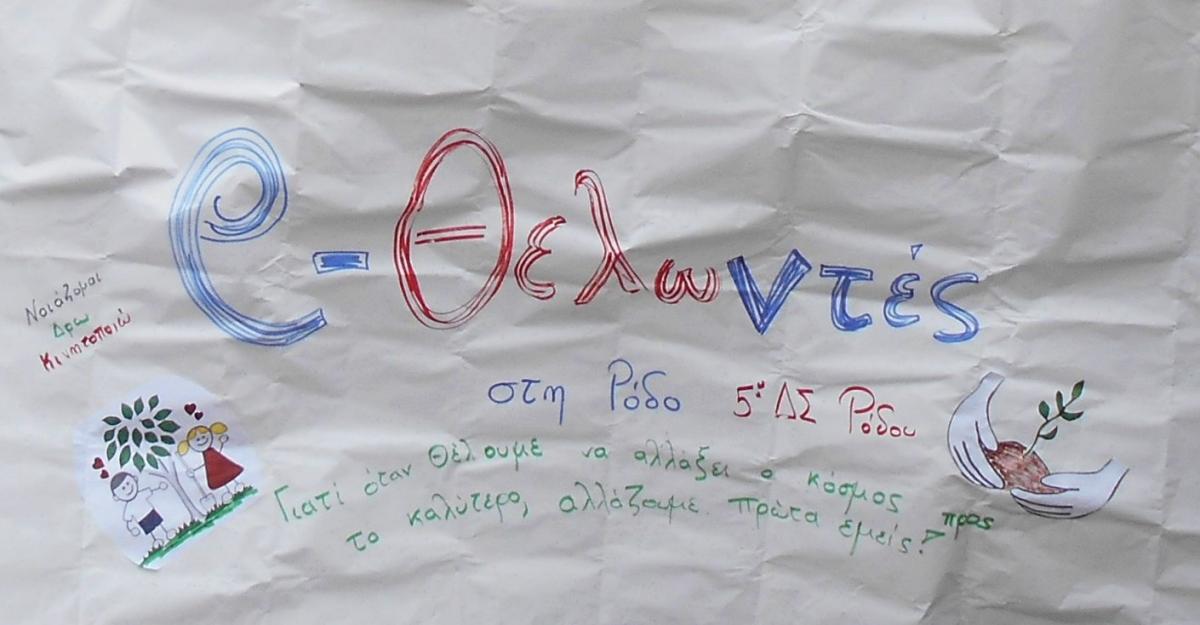 e-Θελωντές
Νοιάζομαι
Δρω
Κινητοποιώ
στη Ρόδο 5º ΔΣ Ρόδου
Γιατί όταν θέλουμε να αλλάξει ο κόσμος προς
το καλύτερο, αλλάζουμε πρώτα εμείς!